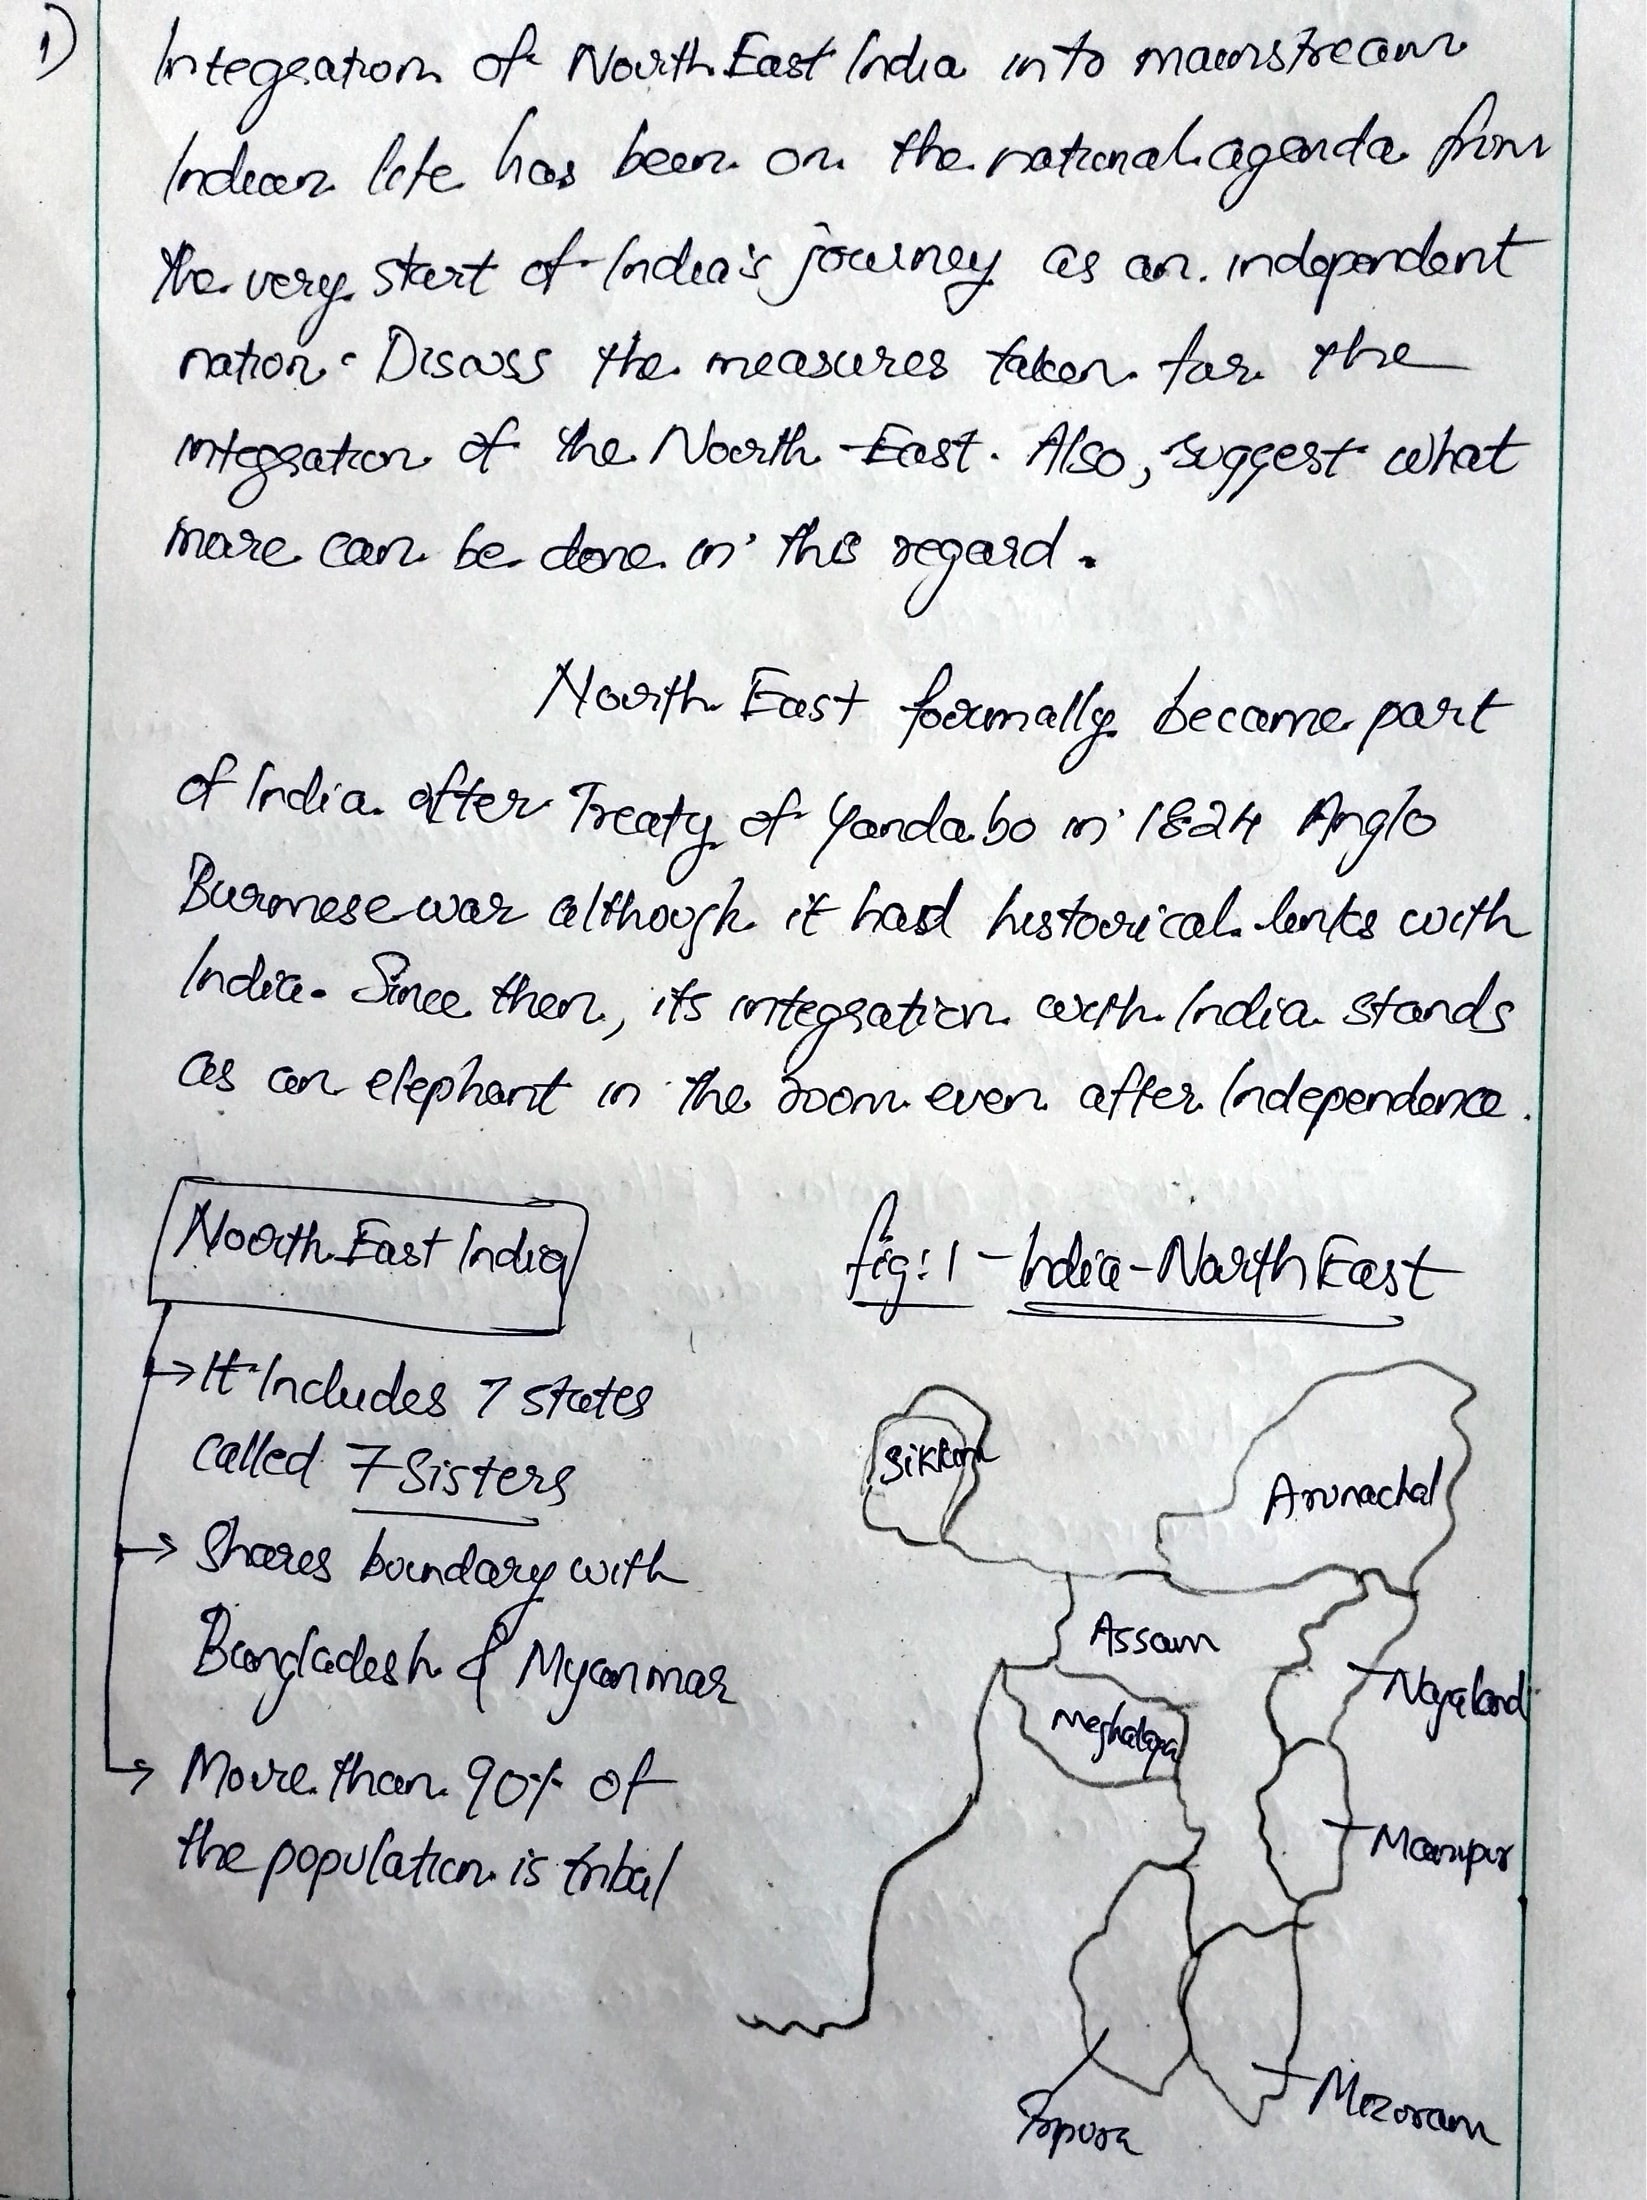 1)
Integration of North East India into mainstream
Indian life has been on the national agenda from
the very start of India's journey as an independent
nation. Discuss the measures taken for the
integration of the North East. Also, suggest what
more can be done in this regard.
North East formally became part
of India after Treaty of Yandabo in 1824 Anglo
Burmese war although it had historical links with
India. Since then, its integration with India stands
as an elephant in the room even after Independence.
North East India
→ It Includes 7 states
called 7 Sisters
→ Shares boundary with
Bangladesh & Myanmar
→ More than 90% of
the population is tribal
fig: 1 - India - North East
Sikkim
Arunachal
Assam
Nagaland
Meghalaya
Manipur
Mizoram
Tripura